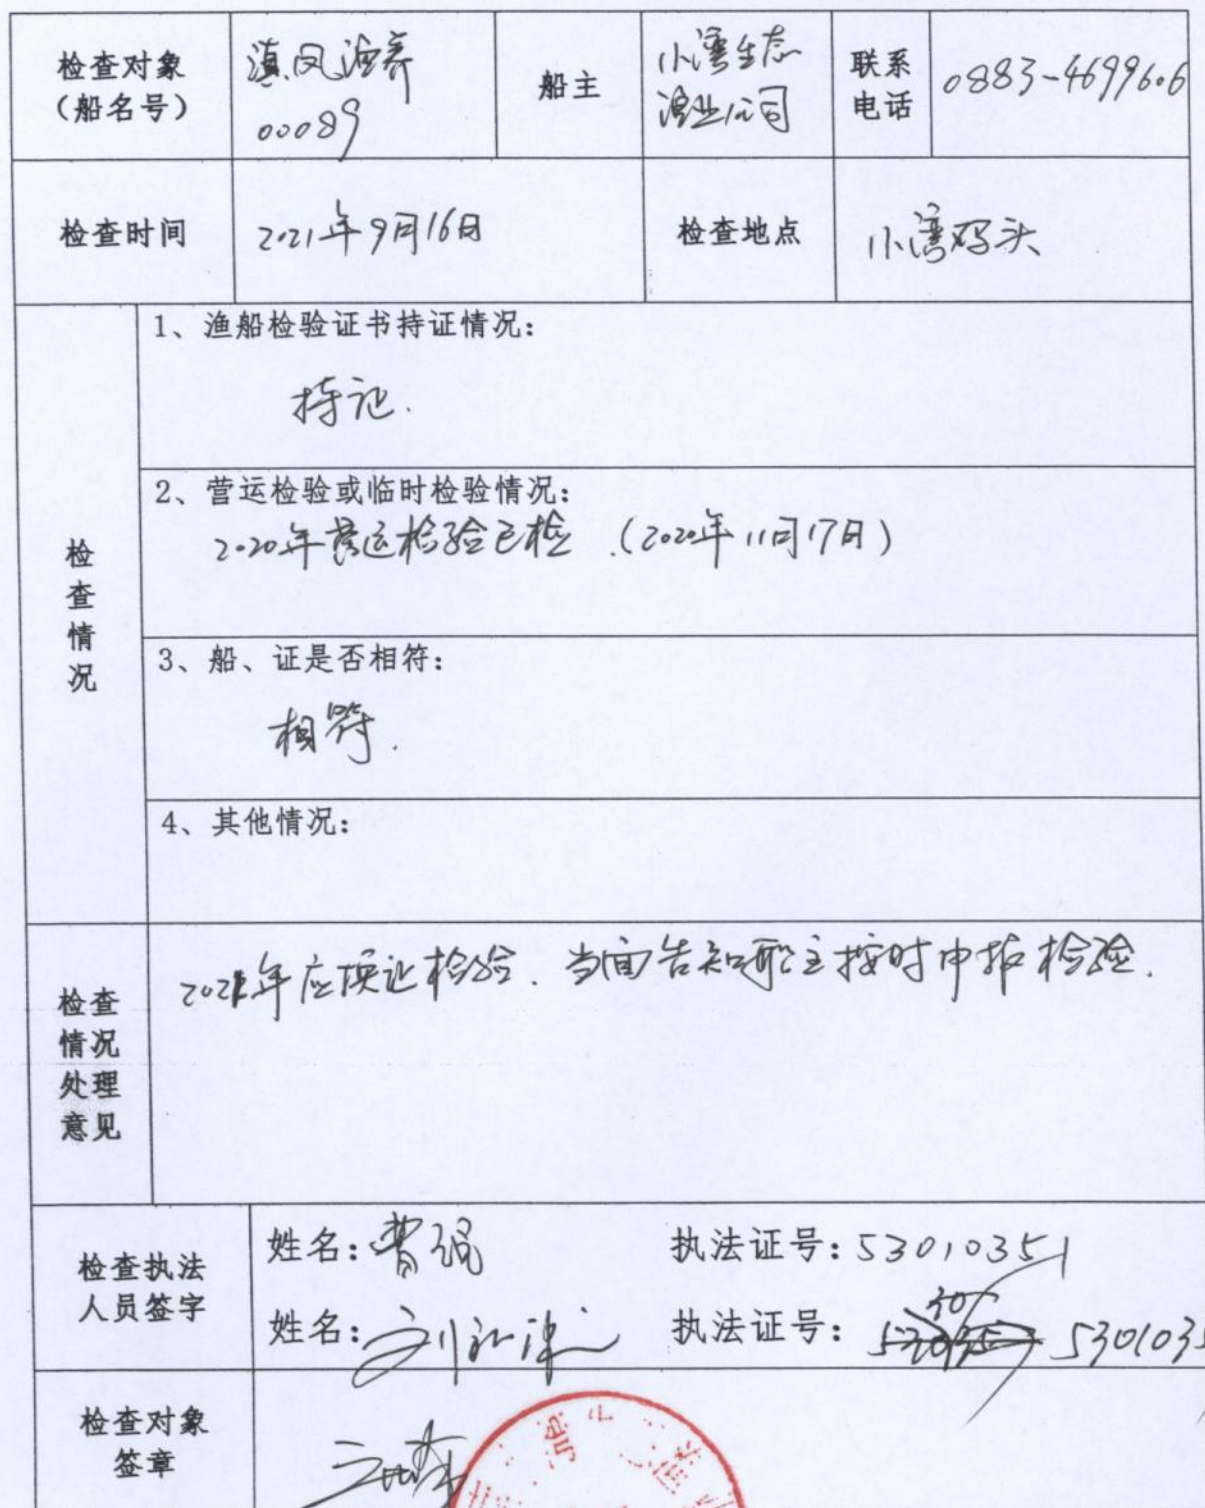 检查对象
（船名号）
滇凤渔养
00089
船主
小湾生态
渔业公司
联系
电话
0883-4699606
检查时间
2021年9月16日
检查地点
小湾码头
检查情况
1、渔船检验证书持证情况：
持证.
2、营运检验或临时检验情况：
2020年营运检验已检.（2020年11月17日）
3、船、证是否相符：
相符.
4、其他情况：
检查
情况
处理
意见
2021年应换证检验.当面告知船主按时申报检验.
检查执法
人员签字
姓名：曹强
执法证号：53010351
姓名：刘
执法证号：
530103
检查对象
签章